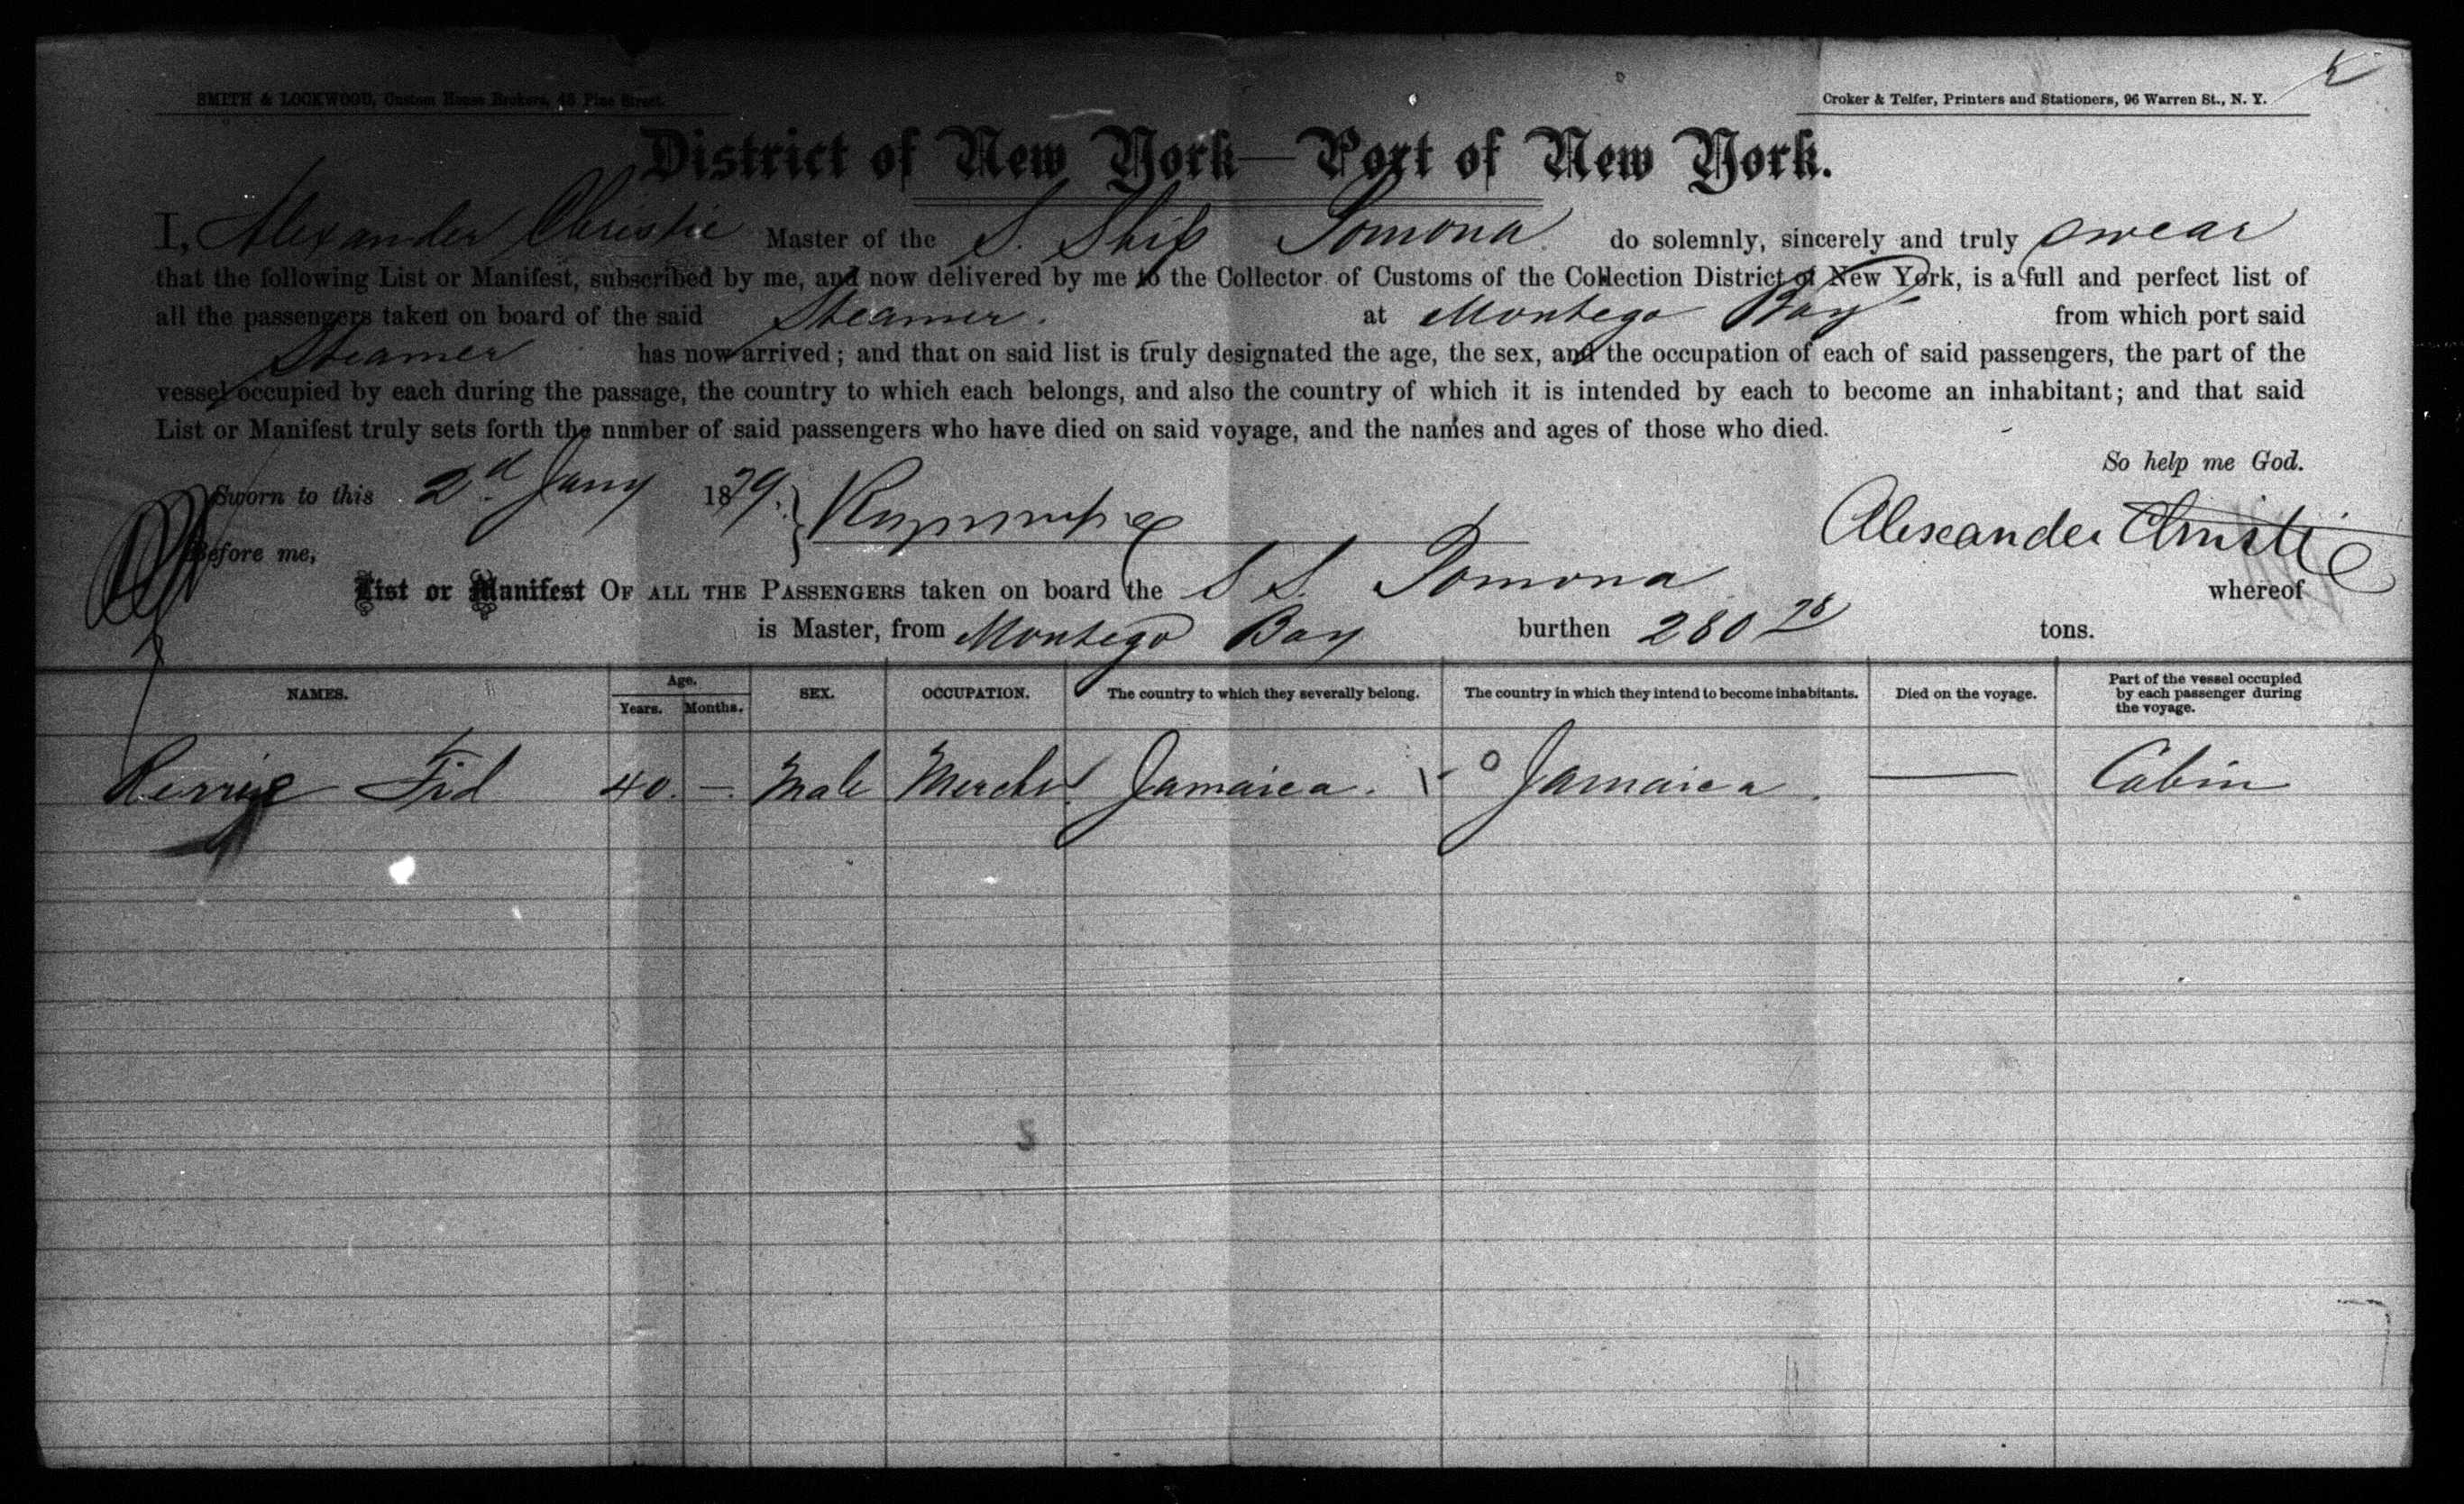 SMITH & LOCKWOOD, Custom House Brokers, 45 Pine Street.
Croker & Telfer, Printers and Stationers, 96 Warren St., N. Y.
District of New York—Port of New York.
I, Alexander Christie Master of the S. Ship Pomona do solemnly, sincerely and truly swear
that the following List or Manifest, subscribed by me, and now delivered by me to the Collector of Customs of the Collection District of New York, is a full and perfect list of
all the passengers taken on board of the said Steamer. at Montego Bay from which port said
Steamer has now arrived; and that on said list is truly designated the age, the sex, and the occupation of each of said passengers, the part of the
vessel occupied by each during the passage, the country to which each belongs, and also the country of which it is intended by each to become an inhabitant; and that said
List or Manifest truly sets forth the number of said passengers who have died on said voyage, and the names and ages of those who died.
So help me God.
Sworn to this 2d Jany 1879.
Alexander Christie
Before me,
List or Manifest OF ALL THE PASSENGERS taken on board the S S. Pomona whereof
is Master, from Montego Bay burthen 280 78 tons.
NAMES. Age. Years. Months. SEX. OCCUPATION. The country to which they severally belong. The country in which they intend to become inhabitants. Died on the voyage. Part of the vessel occupied by each passenger during the voyage.
40. —. Male Jamaica. Jamaica. — Cabin